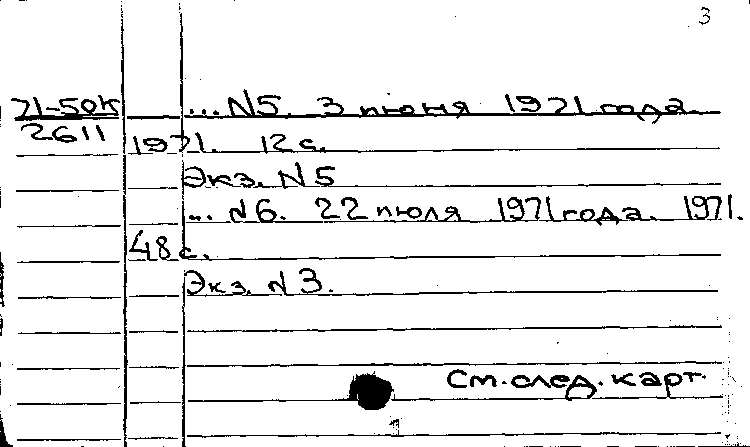 3
71-50к ... N5. 3 июня 1971 года.
2611 1971. 12 с.
Экз. N5
... N6. 22 июля 1971 года. 1971.
48 с.
Экз. N3.
См. след. карт.
1